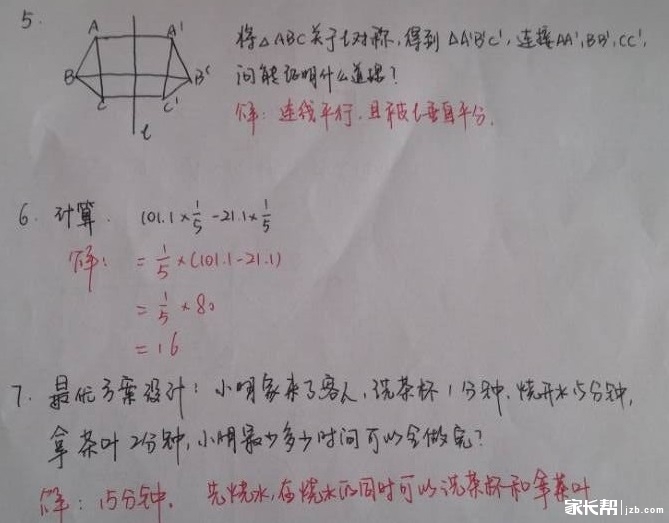 5.
A A'
B B'
C C'
l
将△ABC关于l对称,得到△A'B'C',连接AA',BB',CC',
问能证明什么道理?
解:连线平行,且被l垂直平分.
6. 计算. 101.1×1/5-21.1×1/5
解: =1/5×(101.1-21.1)
=1/5×80
=16
7. 最优方案设计:小明家来了客人,洗茶杯1分钟,烧开水15分钟,
拿茶叶2分钟,小明最少多少时间可以全做完?
解:15分钟. 先烧水,在烧水的同时可以洗茶杯和拿茶叶
家长帮|jzb.com